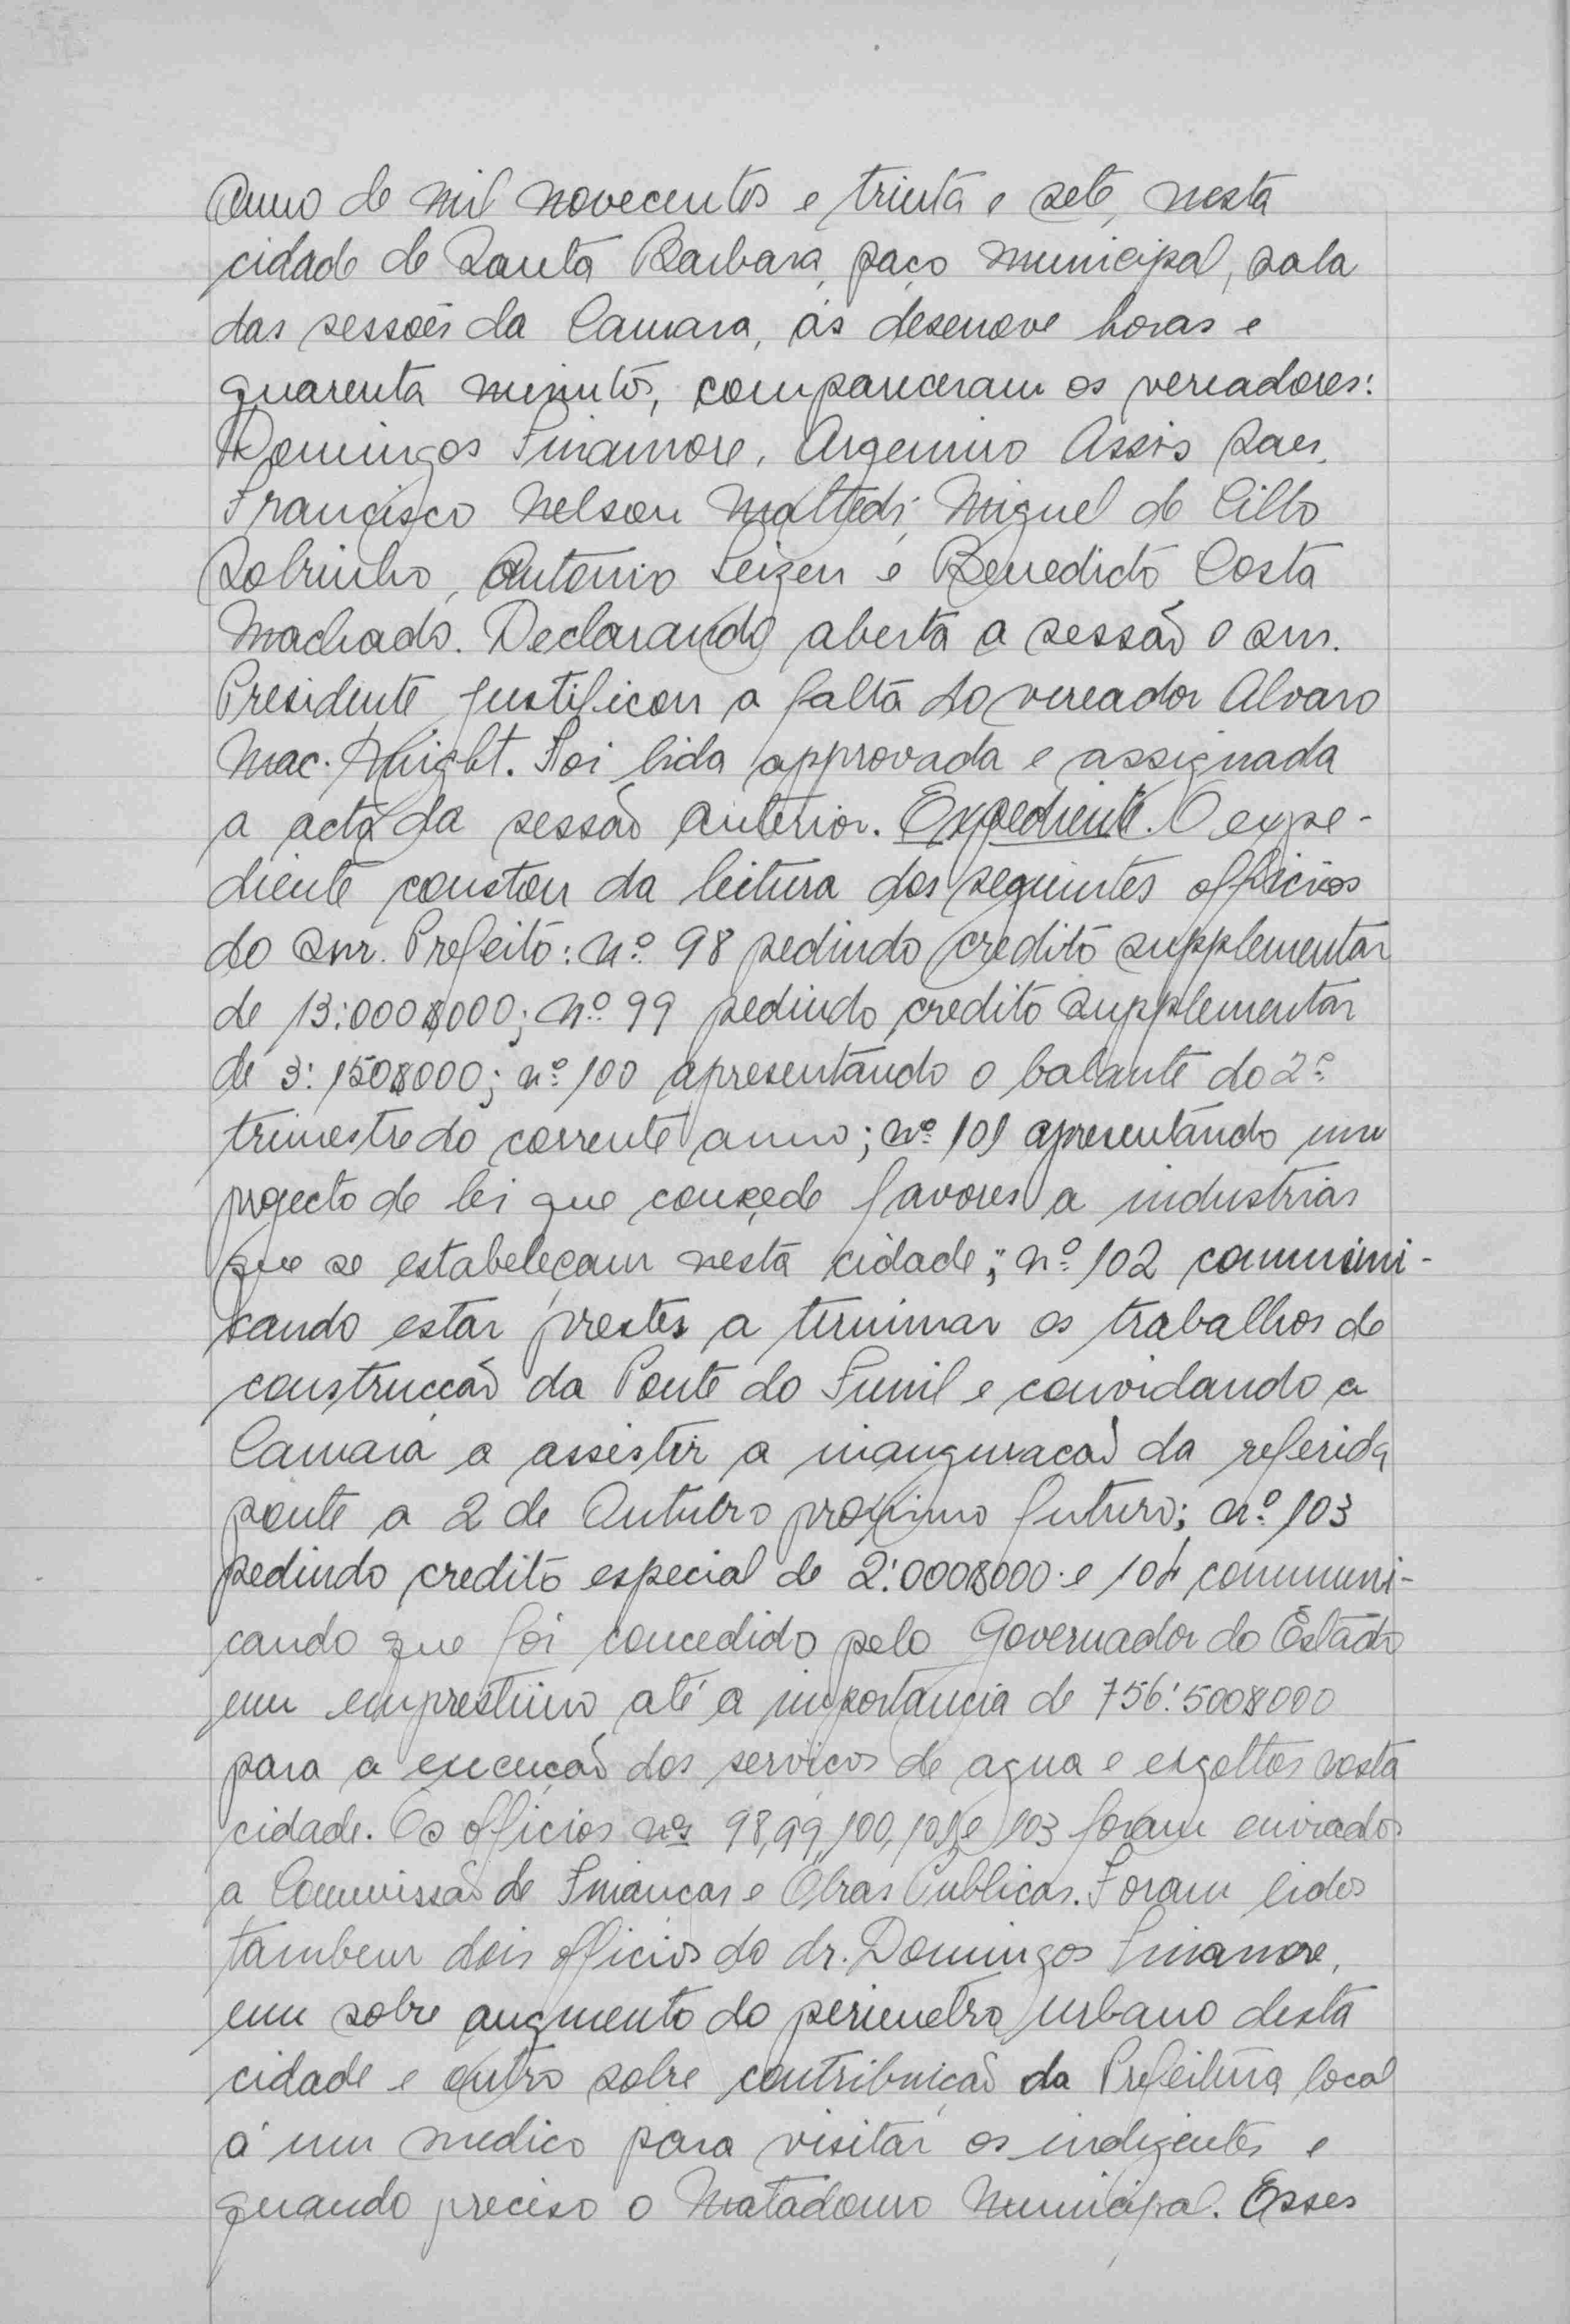 Anno de mil novecentos e trinta e sete, nesta
cidade de Santa Barbara, paço municipal, sala
das sessões da Camara, ás desenove horas e
quarenta minutos, compareceram os vereadores:
Domingos Finamore, Argemiro Assis Saes,
Francisco Nelson Maltedi, Miguel de Cillo
Sobrinho, Antonio Seizen e Benedicto Costa
Machado. Declarando aberta a sessão o snr.
Presidente justificou a falta do vereador Alvaro
Mac-Knight. Foi lida approvada e assignada
a acta da sessão anterior. Expediente. O expe-
diente constou da leitura dos seguintes officios
do snr. Prefeito: nº 98 pedindo credito supplementar
de 13:000$000; nº 99 pedindo credito supplementar
de 3:150$000; nº 100 apresentando o balante do 2º
trimestre do corrente anno; nº 101 apresentando um
projecto de lei que concede favores a industrias
que se estabeleçam nesta cidade; nº 102 communi-
cando estar prestes a terminar os trabalhos de
construcção da Ponte do Funil e convidando a
Camara a assistir a inauguração da referida
ponte a 2 de Outubro proximo futuro; nº 103
pedindo credito especial de 2:000$000 e 104 communi-
cando que foi concedido pelo Governador do Estado
um emprestimo até a importancia de 756:500$000
para a execução dos serviços de agua e exgottos nesta
cidade. Os officios nos 98, 99, 100, 101, e 103 foram enviados
a Commissão de Finanças e Obras Publicas. Foram lidos
tambem dois officios do dr. Domingos Finamore,
um sobre augmento do perimetro urbano desta
cidade e outro sobre contribuição da Prefeitura local
á um medico para visitar os indigentes e
quando preciso o Matadouro Municipal. Esses